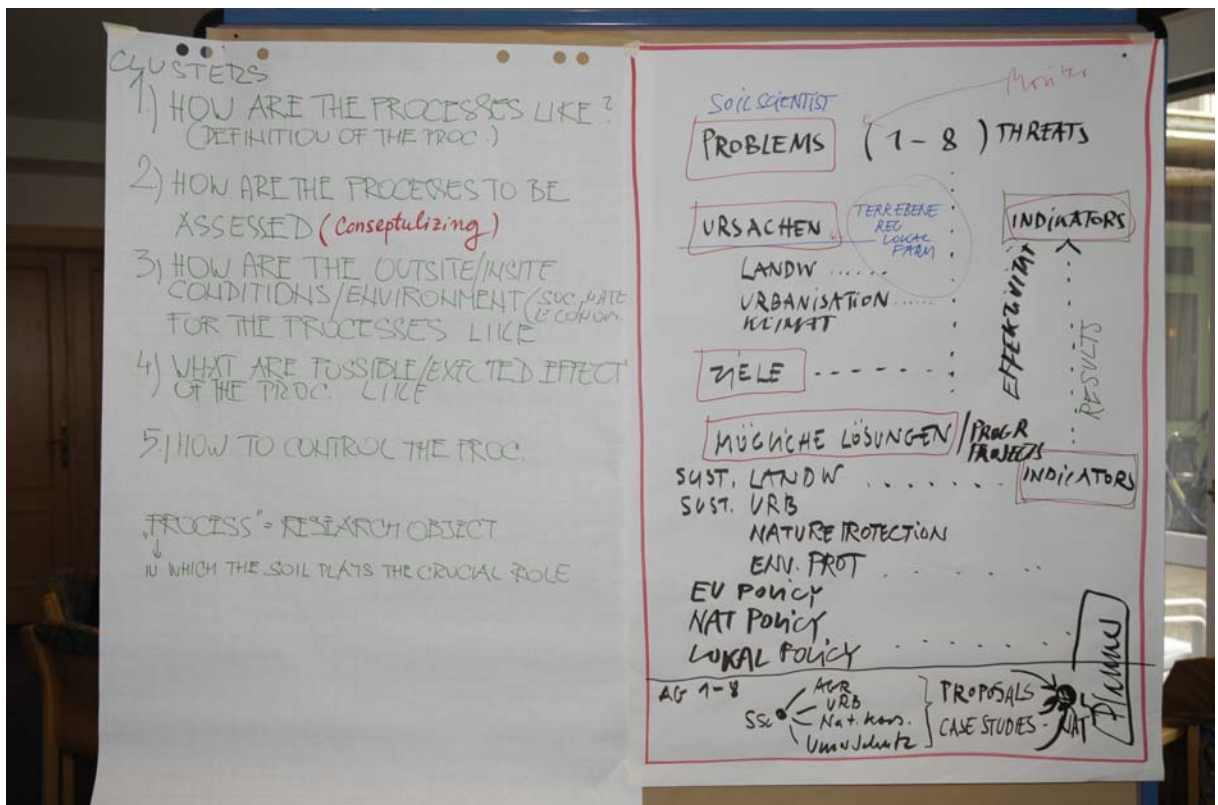 CLUSTERS
1.) HOW ARE THE PROCESSES LIKE?
(DEFINITION OF THE PROC.)
2.) HOW ARE THE PROCESSES TO BE
ASSESSED (Conseptulizing)
3.) HOW ARE THE OUTSITE/INSITE
CONDITIONS/ENVIRONMENT (SOC, NATE
ECONOM.
FOR THE PROCESSES LIKE
4.) WHAT ARE POSSIBLE/EXECTED EFFECT
OF THE PROC. LIKE
5.) HOW TO CONTROL THE PROC.
„PROCESS" = RESEARCH OBJECT
↓
IN WHICH THE SOIL PLAYS THE CRUCIAL ROLE
Monitor
SOIL SCIENTIST
PROBLEMS (1-8) THREATS
URSACHEN
TERR EBENE
REG
LOKAL
FARM
INDIKATORS
LANDW ......
URBANISATION .....
KLIMAT
EFFEKTIVITÄT
RESULTS
ZIELE - - - - - -
MÖGLICHE LÖSUNGEN / PROGR
PROJECTS
SUST. LANDW . . . . . . . INDICATORS
SUST. URB
NATURE PROTECTION
ENV. PROT . . . . . .
EU POLICY
NAT POLICY
LOKAL POLICY . . . . . .
AG 1-8
SSc
AGR
URB
Nat. kons.
Umweltschutz
PROPOSALS
CASE STUDIES - NAT